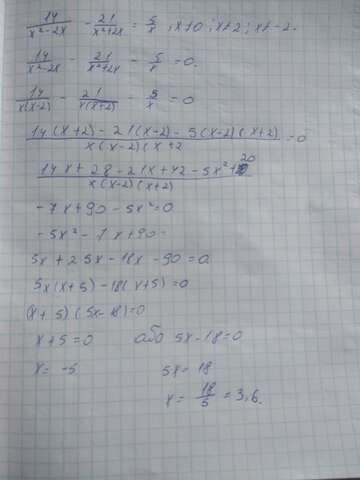 14/(x²-2x) - 21/(x²+2x) = 5/x , x≠0 ; x≠2 ; x≠-2.
14/(x²-2x) - 21/(x²+2x) - 5/x = 0.
14/(x(x-2)) - 21/(x(x+2)) - 5/x = 0
(14(x+2) - 21(x-2) - 5(x-2)(x+2))/(x(x-2)(x+2) = 0
(14x + 28 - 21x + 42 - 5x² + 20)/(x(x-2)(x+2))
-7x + 90 - 5x² = 0
-5x² - 7x + 90
5x + 25x - 18x - 90 = 0
5x(x+5) - 18(x+5) = 0
(x+5)(5x-18)=0
x+5=0 або 5x-18=0
x= -5 5x = 18
x = 18/5 = 3,6.